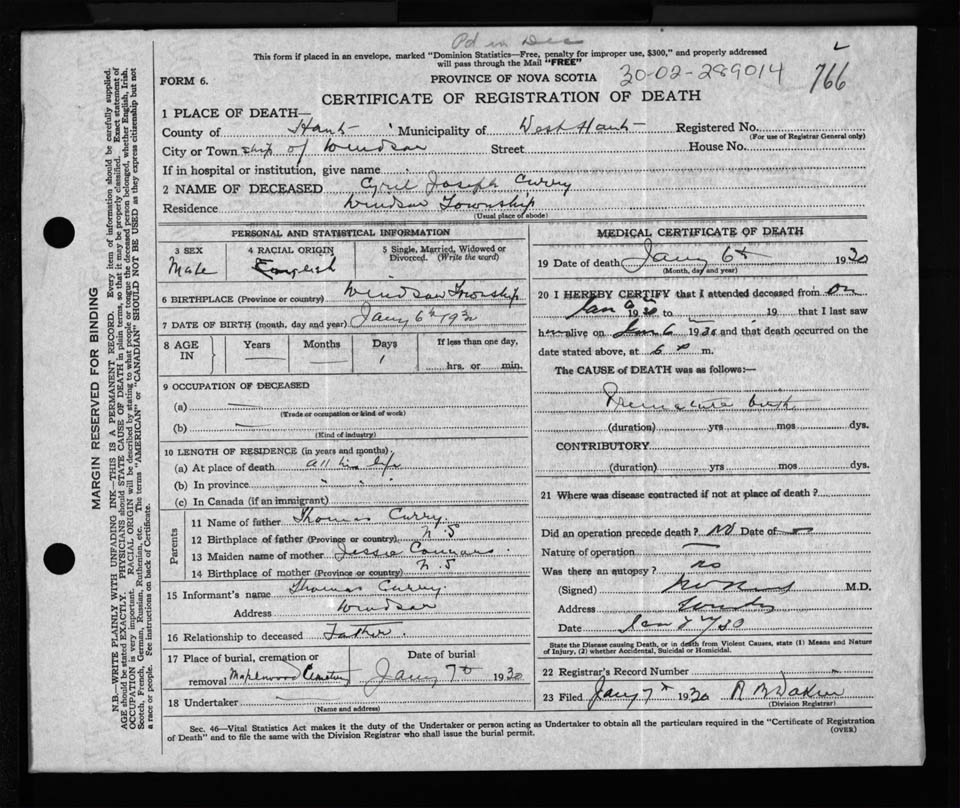 Pd in Dec
This form if placed in an envelope, marked "Dominion Statistics—Free, penalty for improper use, $300," and properly addressed
will pass through the Mail "FREE"
FORM 6.
PROVINCE OF NOVA SCOTIA
30-02-289014
766
CERTIFICATE OF REGISTRATION OF DEATH
1 PLACE OF DEATH—
County of Hants Municipality of West Hants Registered No.
(For use of Registrar General only)
City or Town ship of Windsor Street House No.
If in hospital or institution, give name
2 NAME OF DECEASED Cyril Joseph Curry
Residence Windsor Township
(Usual place of abode)
PERSONAL AND STATISTICAL INFORMATION
3 SEX
Male
4 RACIAL ORIGIN
English
5 Single, Married, Widowed or
Divorced. (Write the word)
6 BIRTHPLACE (Province or country) Windsor Township
7 DATE OF BIRTH (month, day and year) Jany 6th 1930
8 AGE
IN
Years
Months
Days
1
If less than one day,
hrs. or min.
9 OCCUPATION OF DECEASED
(a) —
(Trade or occupation or kind of work)
(b) —
(Kind of industry)
10 LENGTH OF RESIDENCE (in years and months)
(a) At place of death all his life
(b) In province " " "
(c) In Canada (if an immigrant)
Parents
11 Name of father Thomas Curry
12 Birthplace of father (Province or country) N.S
13 Maiden name of mother Jessie
14 Birthplace of mother (Province or country) N.S
15 Informant's name Thomas Curry
Address Windsor
16 Relationship to deceased Father.
17 Place of burial, cremation or
removal Maplewood Cemetery
Date of burial
Jany 7th 1930
18 Undertaker
(Name and address)
MEDICAL CERTIFICATE OF DEATH
19 Date of death Jany 6th 1930
(Month, day and year)
20 I HEREBY CERTIFY that I attended deceased from on
Jan 6 1930 to 19 that I last saw
him alive on Jan 6 1930 and that death occurred on
date stated above, at 6 P m.
The CAUSE of DEATH was as follows:—
Premature birth
(duration) yrs mos dys.
CONTRIBUTORY
(duration) yrs mos dys.
21 Where was disease contracted if not at place of death?
Did an operation precede death? No Date of —
Nature of operation —
Was there an autopsy? no
(Signed) M.D.
Address Windsor
Date Jan 7/30
State the Disease causing Death, or in death from Violent Causes, state (1) Means and Nature
of Injury, (2) whether Accidental, Suicidal or Homicidal.
22 Registrar's Record Number
23 Filed Jany 7th 1930
(Division Registrar)
Sec. 46—Vital Statistics Act makes it the duty of the Undertaker or person acting as Undertaker to obtain all the particulars required in the "Certificate of Registration
of Death" and to file the same with the Division Registrar who shall issue the burial permit.
(OVER)
MARGIN RESERVED FOR BINDING
N.B.—WRITE PLAINLY WITH UNFADING INK—THIS IS A PERMANENT RECORD. Every item of information should be carefully supplied.
AGE should be stated EXACTLY. PHYSICIANS should STATE CAUSE OF DEATH in plain terms, so that it may be properly classified. Exact statement of
OCCUPATION is very important. RACIAL ORIGIN will be described by stating to what people or tongue the deceased person belonged, whether English, Irish,
Scotch, French, German, Russian, Ruthenian, etc. The terms "AMERICAN" or "CANADIAN" SHOULD NOT BE USED as they express citizenship but not
a race or people. See instructions on back of Certificate.